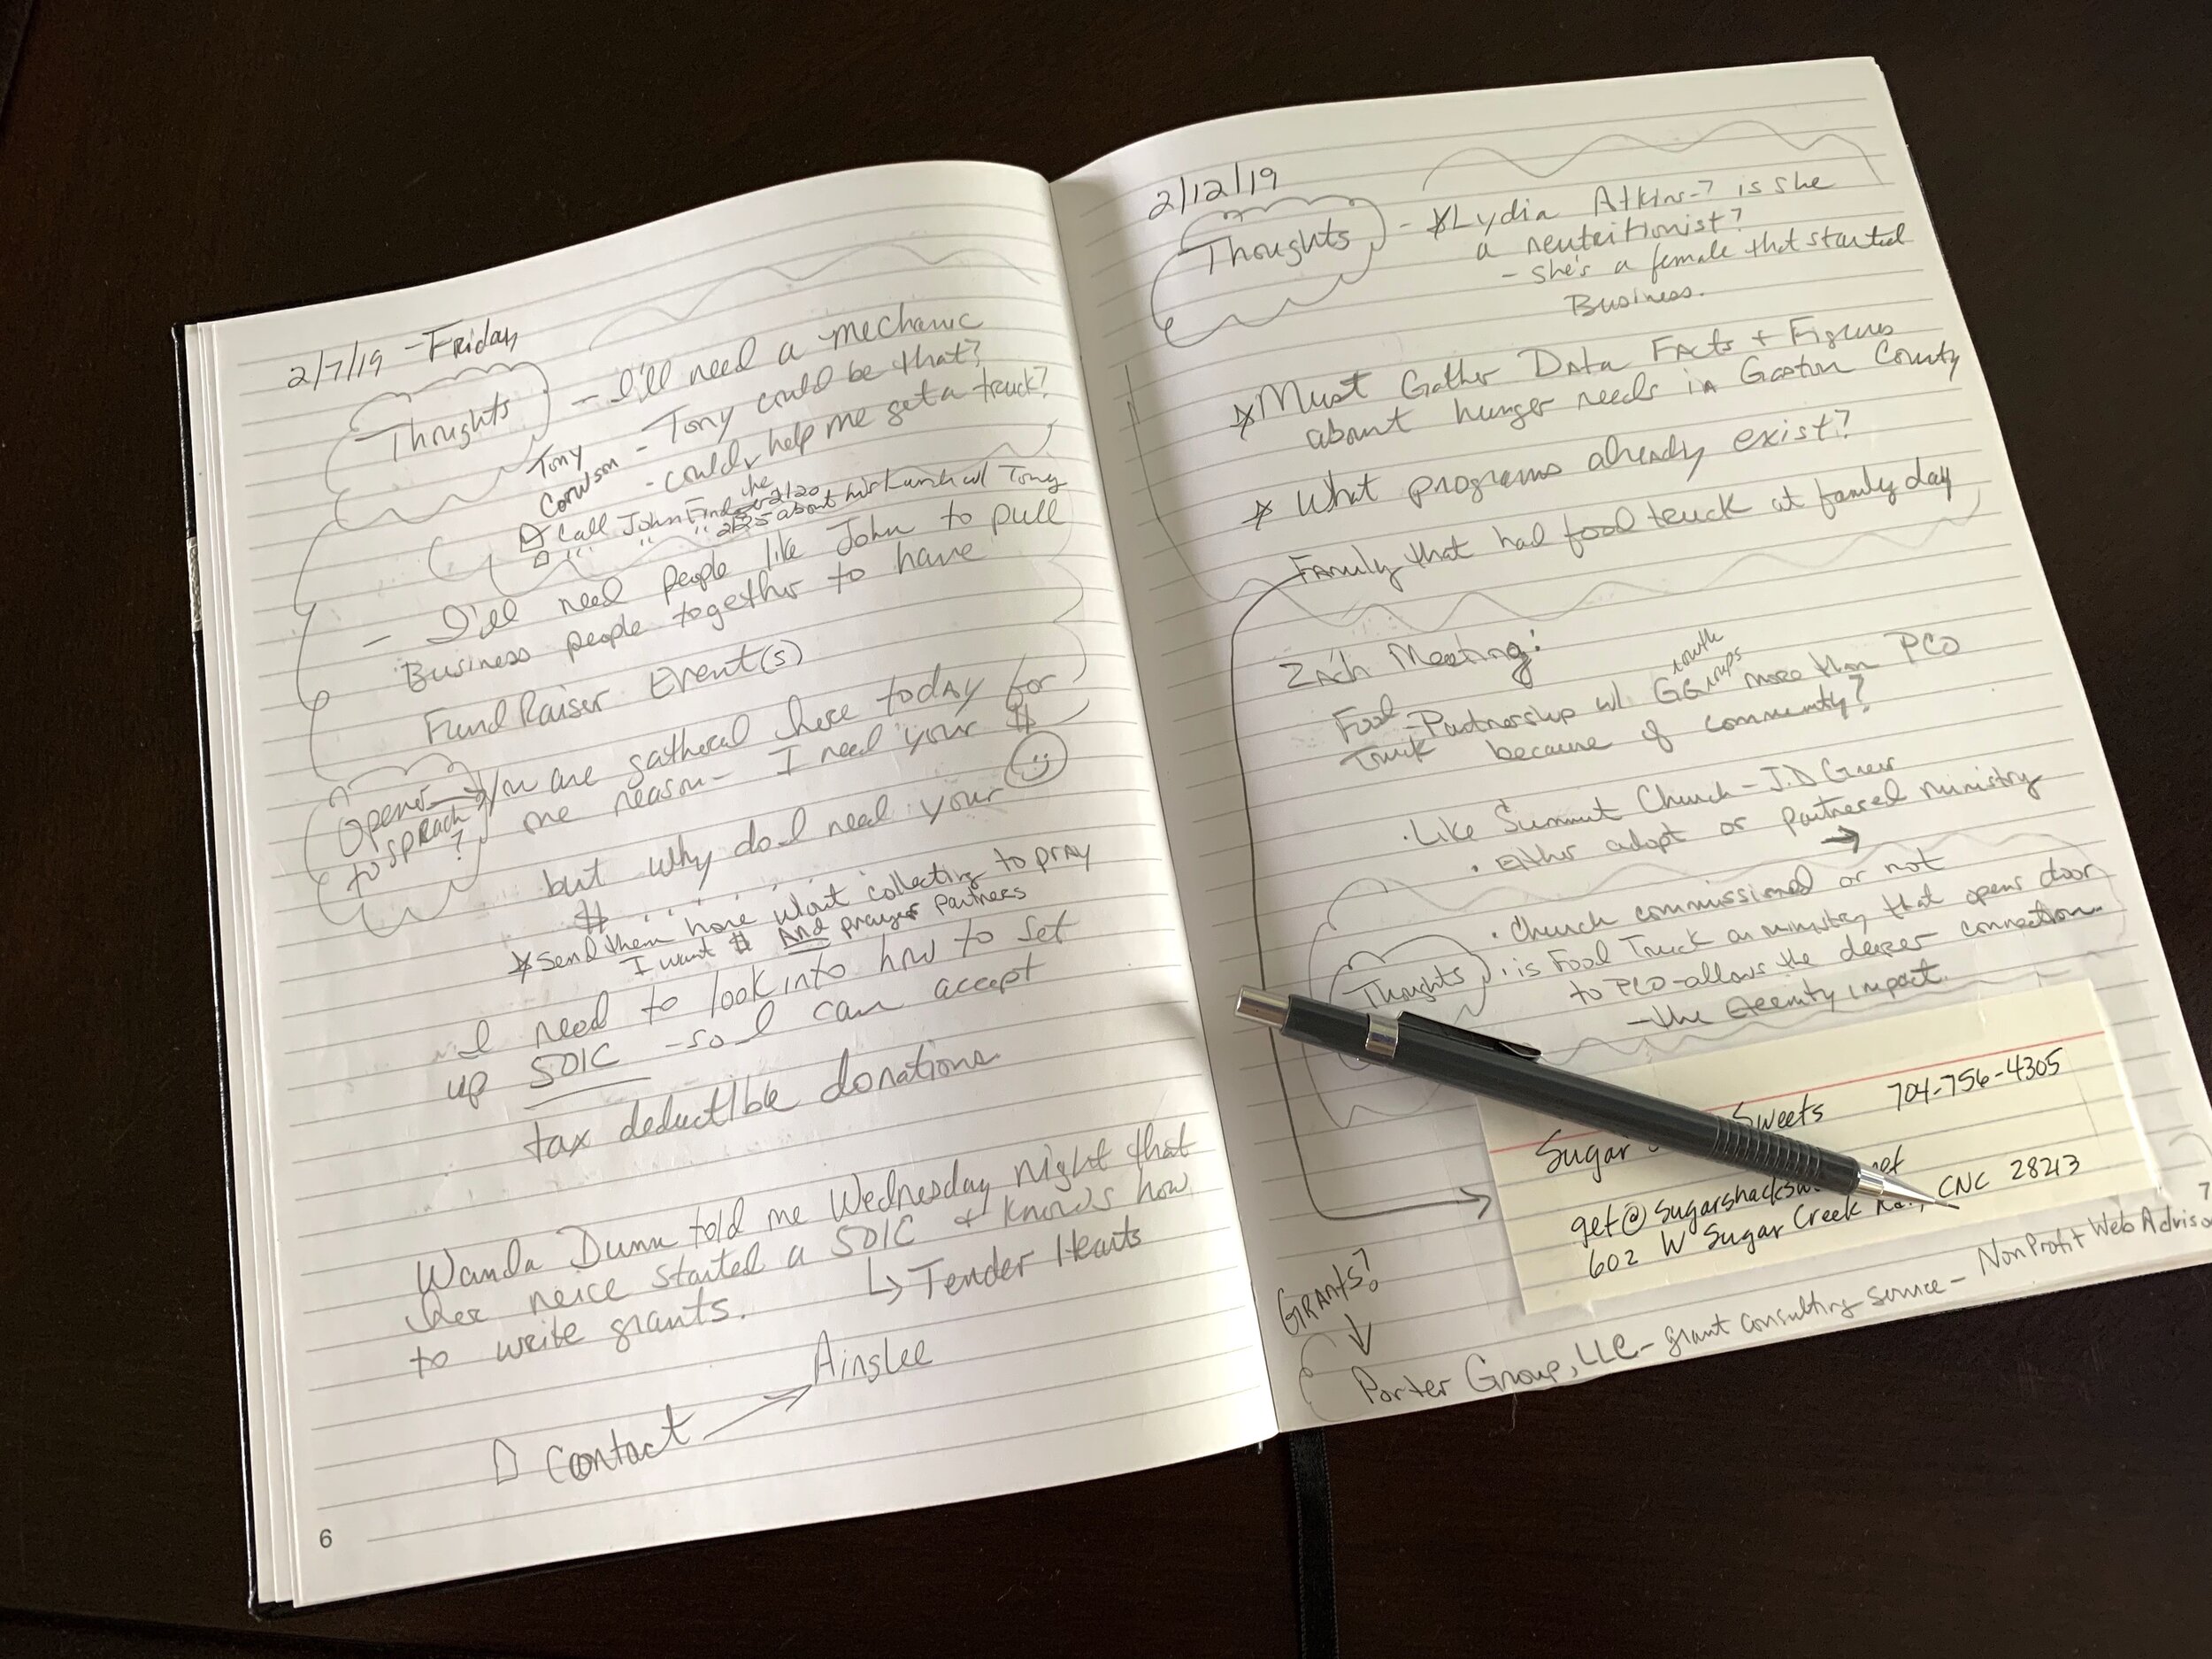 2/7/19 - Friday
Thoughts - I'll need a mechanic
- Tony could be that?
Tony
- could he help me get a truck?
Call John 2/20
" " " 2/25 about his lunch w/ Tony
- I'll need people like John to pull
Business people together to have
Fund Raiser Event(s)
Opener to speach ? → You are gathered here today for
one reason - I need your $
but why do I need your
$ . . . . .
* Send them home w/out collecting to pray
I want $ And prayer partners
I need to look into how to set
up 501C - so I can accept
tax deductible donations
Wanda Dunn told me Wednesday night that
her neice started a 501C & knows how
to write grants. ↳ Tender Hearts
Contact → Ainslee
6
2/12/19
Thoughts - * Lydia Atkins-? is she
a neutritionist?
- she's a female that started
Business.
* Must Gather Data Facts + Figures
about hunger needs in Gaston County
* What programs already exist?
Family that had food truck at family day
Zach Meeting:
Food Truck - Partnership w/ Groups more than PCO
because of community?
· Like Summit Church - J.D Grear
· Either adopt or partnered ministry →
· Church commissioned or not
Thoughts · is Food Truck a ministry that opens door
to PCO - allows the deeper connection
- the Eternity impact.
Sugar Sweets 704-756-4305
get@sugarshacksw
602 W Sugar Creek Rd, CNC 28213
7
GRANTS?
↓
Porter Group, LLC - grant consulting service - NonProfit Web Adviso